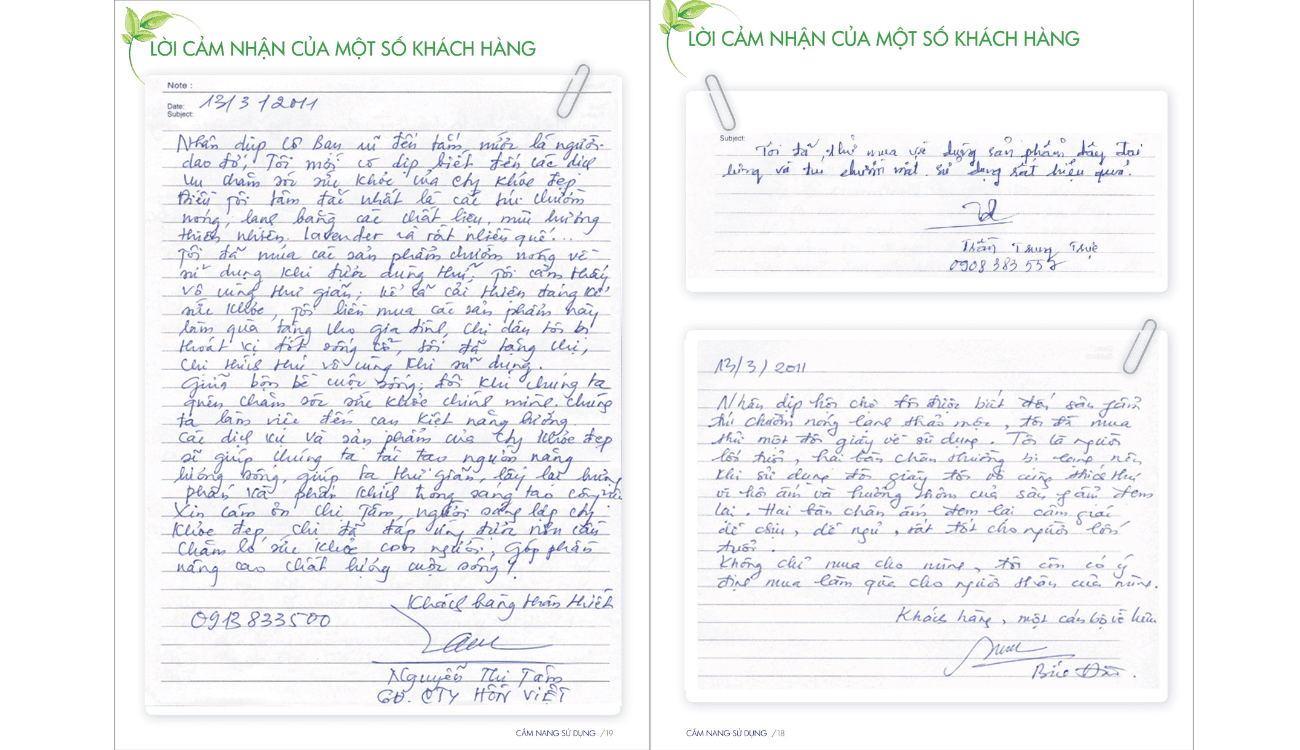 LỜI CẢM NHẬN CỦA MỘT SỐ KHÁCH HÀNG
Note :
Date: 13/3/2011
Subject:
Nhân dịp cô bạn đến tắm, mức là người
dao đỏ, Tôi mới có dịp biết đến các dịch
vụ chăm sóc sức khỏe của Cty Khỏe Đẹp
Điều tôi tâm đắc nhất là các túi chườm
nóng, lạnh bằng các chất liệu, mùi hương
thiên nhiên. lavender và rất nhiều quế...
Tôi đã mua các sản phẩm chườm nóng về
sử dụng khi được dùng thử, tôi cảm thấy
vô cùng thư giãn, kể cả cải thiện đáng kể
sức khỏe, tôi liền mua các sản phẩm này
làm quà tặng cho gia đình, chị dâu tôi bị
thoát vị đốt sống cổ, tôi đã tặng chị,
chị thích thú vô cùng khi sử dụng.
Giữa bộn bề cuộc sống, đôi khi chúng ta
quên chăm sóc sức khỏe chính mình. chúng
ta làm việc đến cạn kiệt năng lượng.
Các dịch vụ và sản phẩm của Cty Khỏe đẹp
sẽ giúp chúng ta tái tạo nguồn năng
lượng sống, giúp ta thư giãn, lấy lại hưng
phấn và phấn khích trong sáng tạo công việc
Xin cám ơn chị Tâm, người sáng lập cty
Khỏe đẹp, chị đã đáp ứng được nhu cầu
chăm lo sức khỏe con người, góp phần
nâng cao chất lượng cuộc sống!
Khách hàng thân thiết
0913833500
Nguyễn Thị Tâm
GĐ. CTY HỒN VIỆT
CẨM NANG SỬ DỤNG /19
LỜI CẢM NHẬN CỦA MỘT SỐ KHÁCH HÀNG
Subject:
Tôi đã thử mua về dụng sản phẩm dây đai
lưng và túi chườm mắt. sử dụng rất hiệu quả.
Trần Trung Trực
0908 383 557
13/3/2011
Nhân dịp hội chợ tôi được biết đến sản phẩm
túi chườm nóng lạnh thảo mộc, tôi đã mua
thử một đôi giày về sử dụng. Tôi là người
lớn tuổi, hai bàn chân thường bị lạnh nên
khi sử dụng đôi giày tôi vô cùng thích thú
vì hơi ấm và hương thơm của sản phẩm đem
lại. Hai bàn chân ấm đem lại cảm giác
dễ chịu, dễ ngủ, rất tốt cho người lớn
tuổi.
Không chỉ mua cho mình, tôi còn có ý
định mua làm quà cho người thân của mình.
Khách hàng, một cán bộ về hưu
CẨM NANG SỬ DỤNG /18